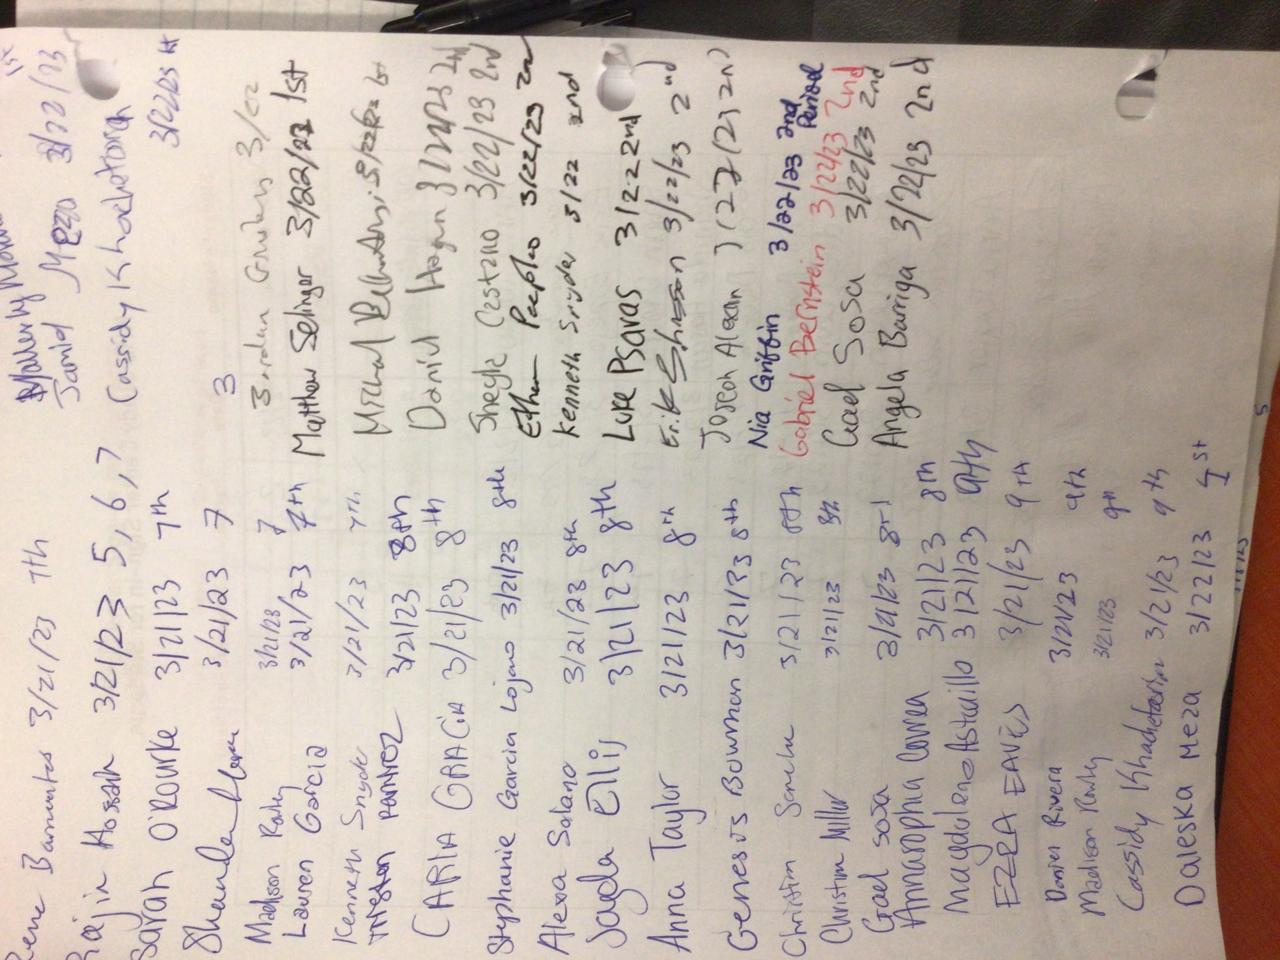 Rene Barrientos 3/21/23 7th
Rajin Hossah 3/21/23 5,6,7
Sarah O'Rourke 3/21/23 7th
3/21/23 7
Madison Raky 3/21/23 7
Lauren Garcia 3/21/23 7th
Kenneth Snyder 3/21/23 7th
Preston Ramirez 3/21/23 8th
CARLA GRACIA 3/21/23 8th
Stephanie Garcia Lojano 3/21/23 8th
Alexa Solano 3/21/23 8th
Jayda Ellis 3/21/23 8th
Anna Taylor 3/21/23 8th
Genesis Bowman 3/21/23 8th
Christin 3/21/23 8th
Christian Miller 3/21/23 8th
Gael Sosa 3/21/23 8th
Annasophia Correa 3/21/23 8th
Magdaleno Astudillo 3/21/23 9th
EZRA EAVES 3/21/23 9th
Rivera 3/21/23 9th
Madison Raky 3/21/23 9th
Cassidy Khachatoorian 3/21/23 9th
Daleska Meza 3/22/23 1st
1st
Jamid Meza 3/22/23
Cassidy Khachatoorian
3/22/23 1st
3
Jordan 3/22
Matthew Selinger 3/22/23 1st
Michael 3/22/23 1st
Daniel Hagan 3/22/23 2nd
Castano 3/22/23 2nd
Ethan Peeples 3/22/23 2nd
Kenneth Snyder 3/22 2nd
Luke Psaras 3/22 2nd
Erik 3/22/23 2nd
Joseph 3/22/23 2nd
Nia Griffin 3/22/23 2nd Period
Gabriel Bernstein 3/22/23 2nd
Gael Sosa 3/22/23 2nd
Angela Barriga 3/22/23 2nd